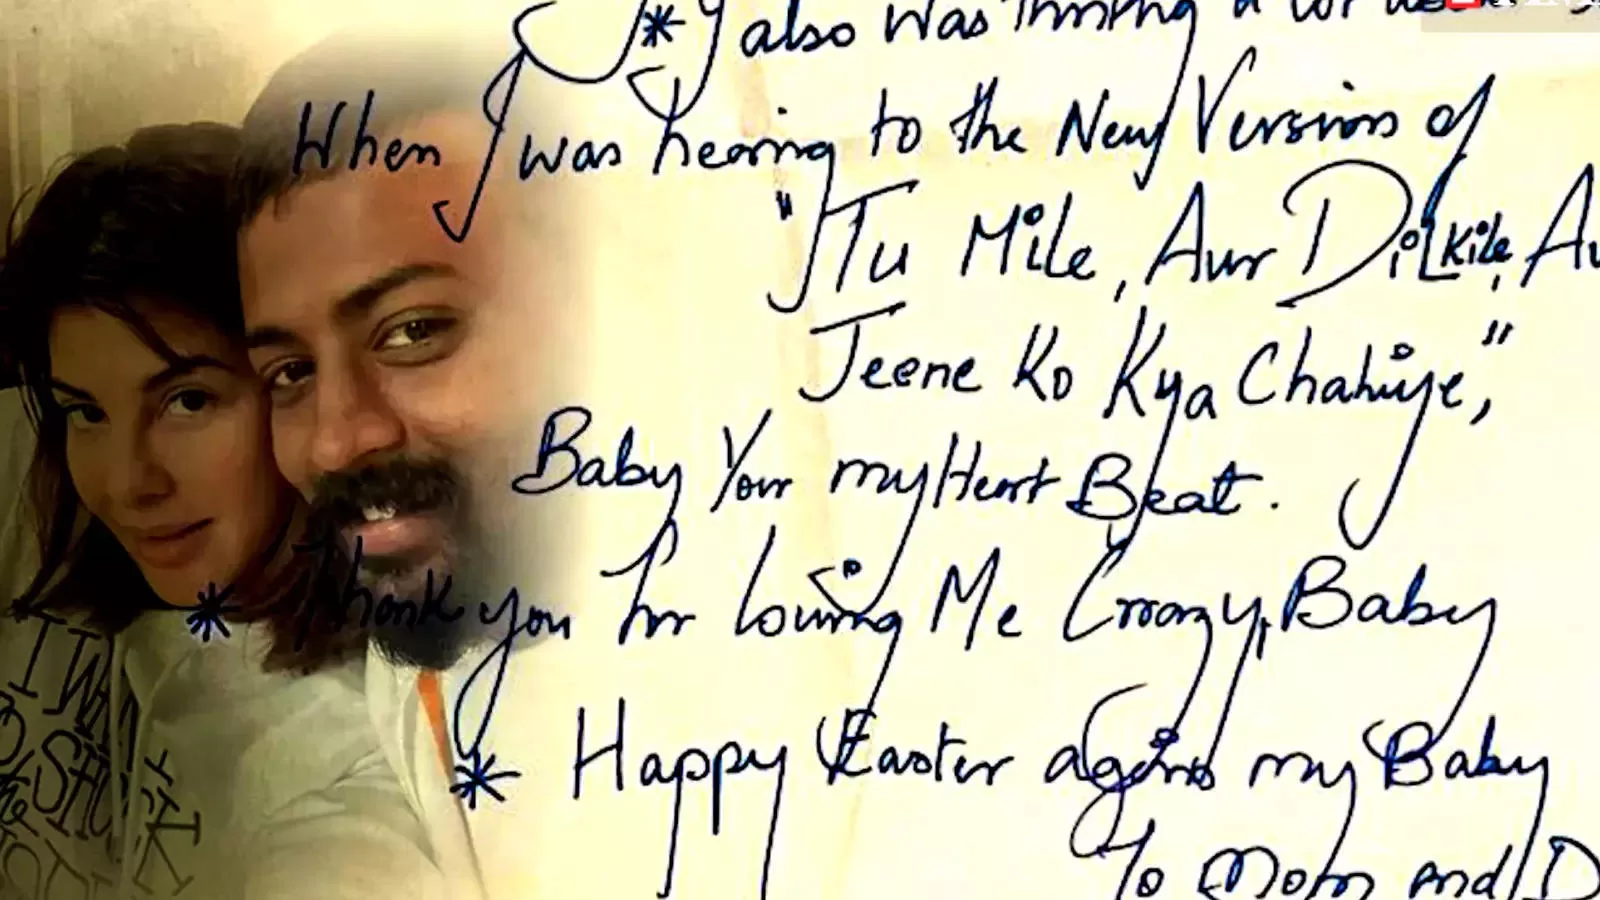 * I also was thinking a lot about
When I was hearing to the New Version of
"Tu Mile, Aur Dil Kile, Au
Jeene Ko Kya Chahiye,"
Baby Your my Heart Beat.
* Thank you for loving Me Crazy, Baby
* Happy Easter again my Baby
To Mom and D
I WA
SHO